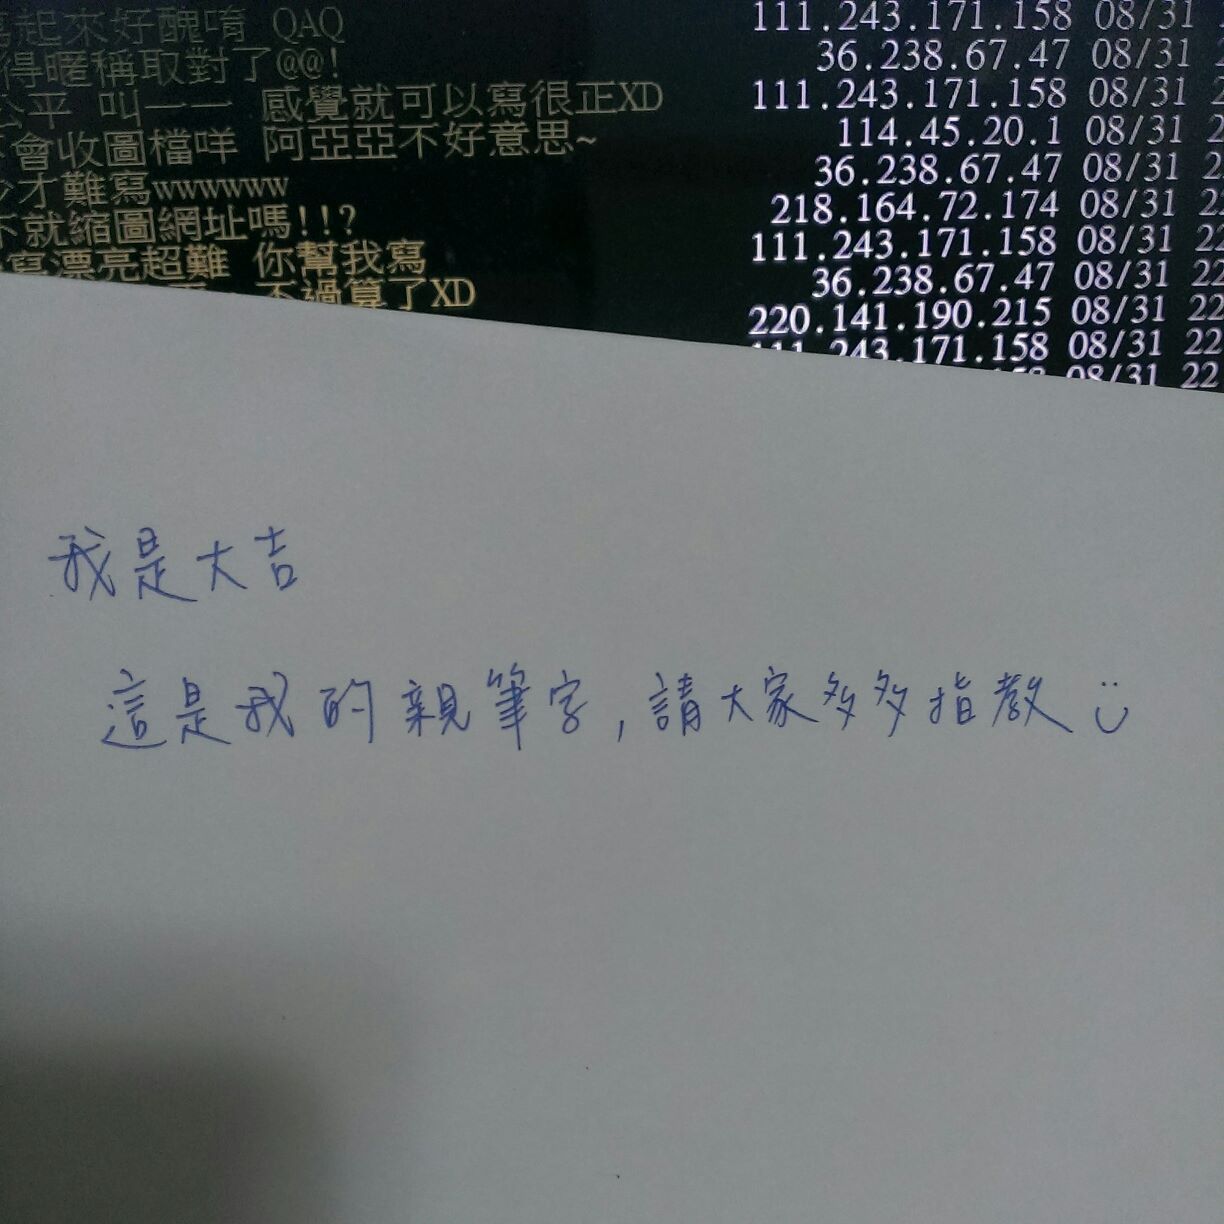 起來好醜唷 QAQ 111.243.171.158 08/31
得暱稱取對了@@! 36.238.67.47 08/31 2
公平 叫一一 感覺就可以寫很正XD 111.243.171.158 08/31 2
會收圖檔咩 阿亞亞不好意思~ 114.45.20.1 08/31 2
才難寫wwwwww 36.238.67.47 08/31 2
不就縮圖網址嗎!!? 218.164.72.174 08/31 22
寫漂亮超難 你幫我寫 111.243.171.158 08/31 22
不過算了XD 36.238.67.47 08/31 22
220.141.190.215 08/31 22
111.243.171.158 08/31 22
08/31 22
我是大吉
這是我的親筆字,請大家多多指教 :)